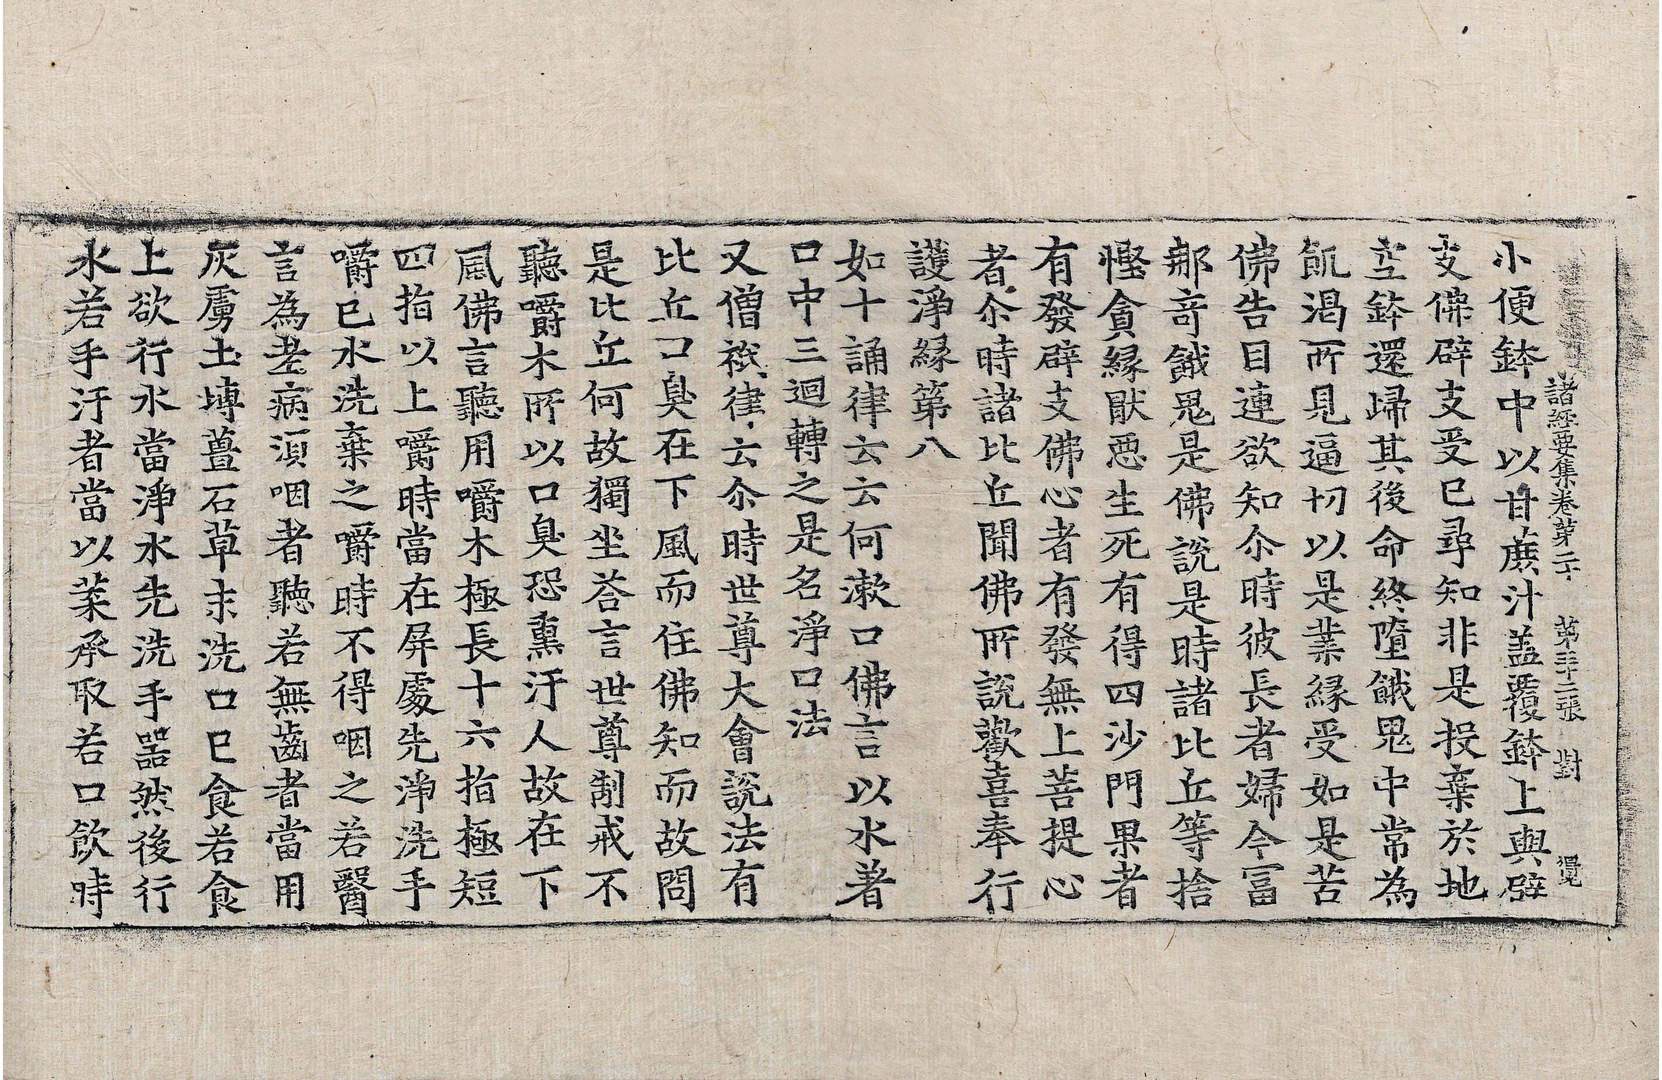 諸經要集卷第二十 第三十二張 對 覺
小便鉢中以甘蔗汁盖覆鉢上與辟
支佛辟支受已尋知非是投棄於地
空鉢還歸其後命終墮餓鬼中常為
飢渴所見逼切以是業緣受如是苦
佛告目連欲知尒時彼長者婦今富
那奇餓鬼是佛說是時諸比丘等捨
慳貪緣猒惡生死有得四沙門果者
有發辟支佛心者有發無上菩提心
者尒時諸比丘聞佛所說歡喜奉行
護淨緣第八
如十誦律云云何漱口佛言以水著
口中三迴轉之是名淨口法
又僧祇律云尒時世尊大會說法有
比丘口臭在下風而住佛知而故問
是比丘何故獨坐荅言世尊制戒不
聽嚼木所以口臭恐熏汙人故在下
風佛言聽用嚼木極長十六指極短
四指以上嚼時當在屏處先淨洗手
嚼已水洗棄之嚼時不得咽之若醫
言為差病須咽者聽若無齒者當用
灰鹵土塼薑石草末洗口已食若食
上欲行水當淨水先洗手器然後行
水若手汙者當以葉承取若口飲時